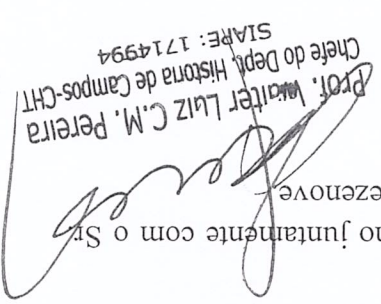 no juntamente com o Sr.
ezenove
Prof. Walter Luiz C.M. Pereira
Chefe do Dept. História de Campos-CHT
SIARE: 1714994